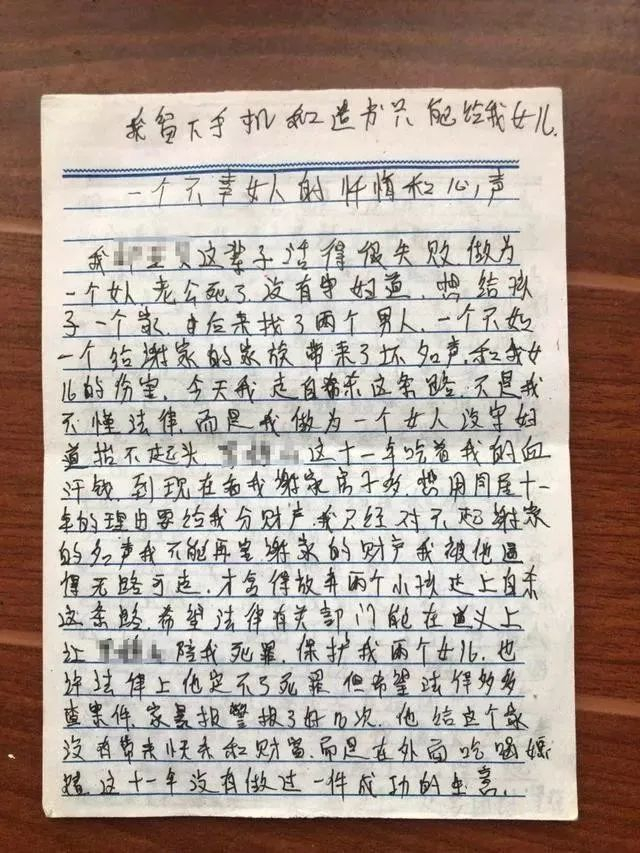 我留下手机和遗书只能给我女儿.
一个不幸女人的忏悔和心声
我 这辈子活得很失败做为
一个女人,老公死了没有守妇道,想给孩
子一个家,由后来找了两个男人,一个不如
一个给谢家的家族带来了坏名声和我女
儿的伤害,今天我走自杀这条路,不是我
不懂法律,而是我做为一个女人没守妇
道抬不起头, 这十一年吃着我的血
汗钱,到现在看我谢家房子多,想用同居十一
年的理由要给我分财产,我已经对不起谢家
的名声我不能再害谢家的财产我被他逼
得无路可走,才舍得放弃两个小孩走上自杀
这条路,希望法律有关部门能在道义上
让 陪我死罪,保护我两个女儿,也
许法律上他定不了死罪但希望法律多多
查案件,家暴报警报了好几次,他给这个家
没有带来快乐和财富,而是在外面吃喝嫖
赌,这十一年没有做过一件成功的生意,